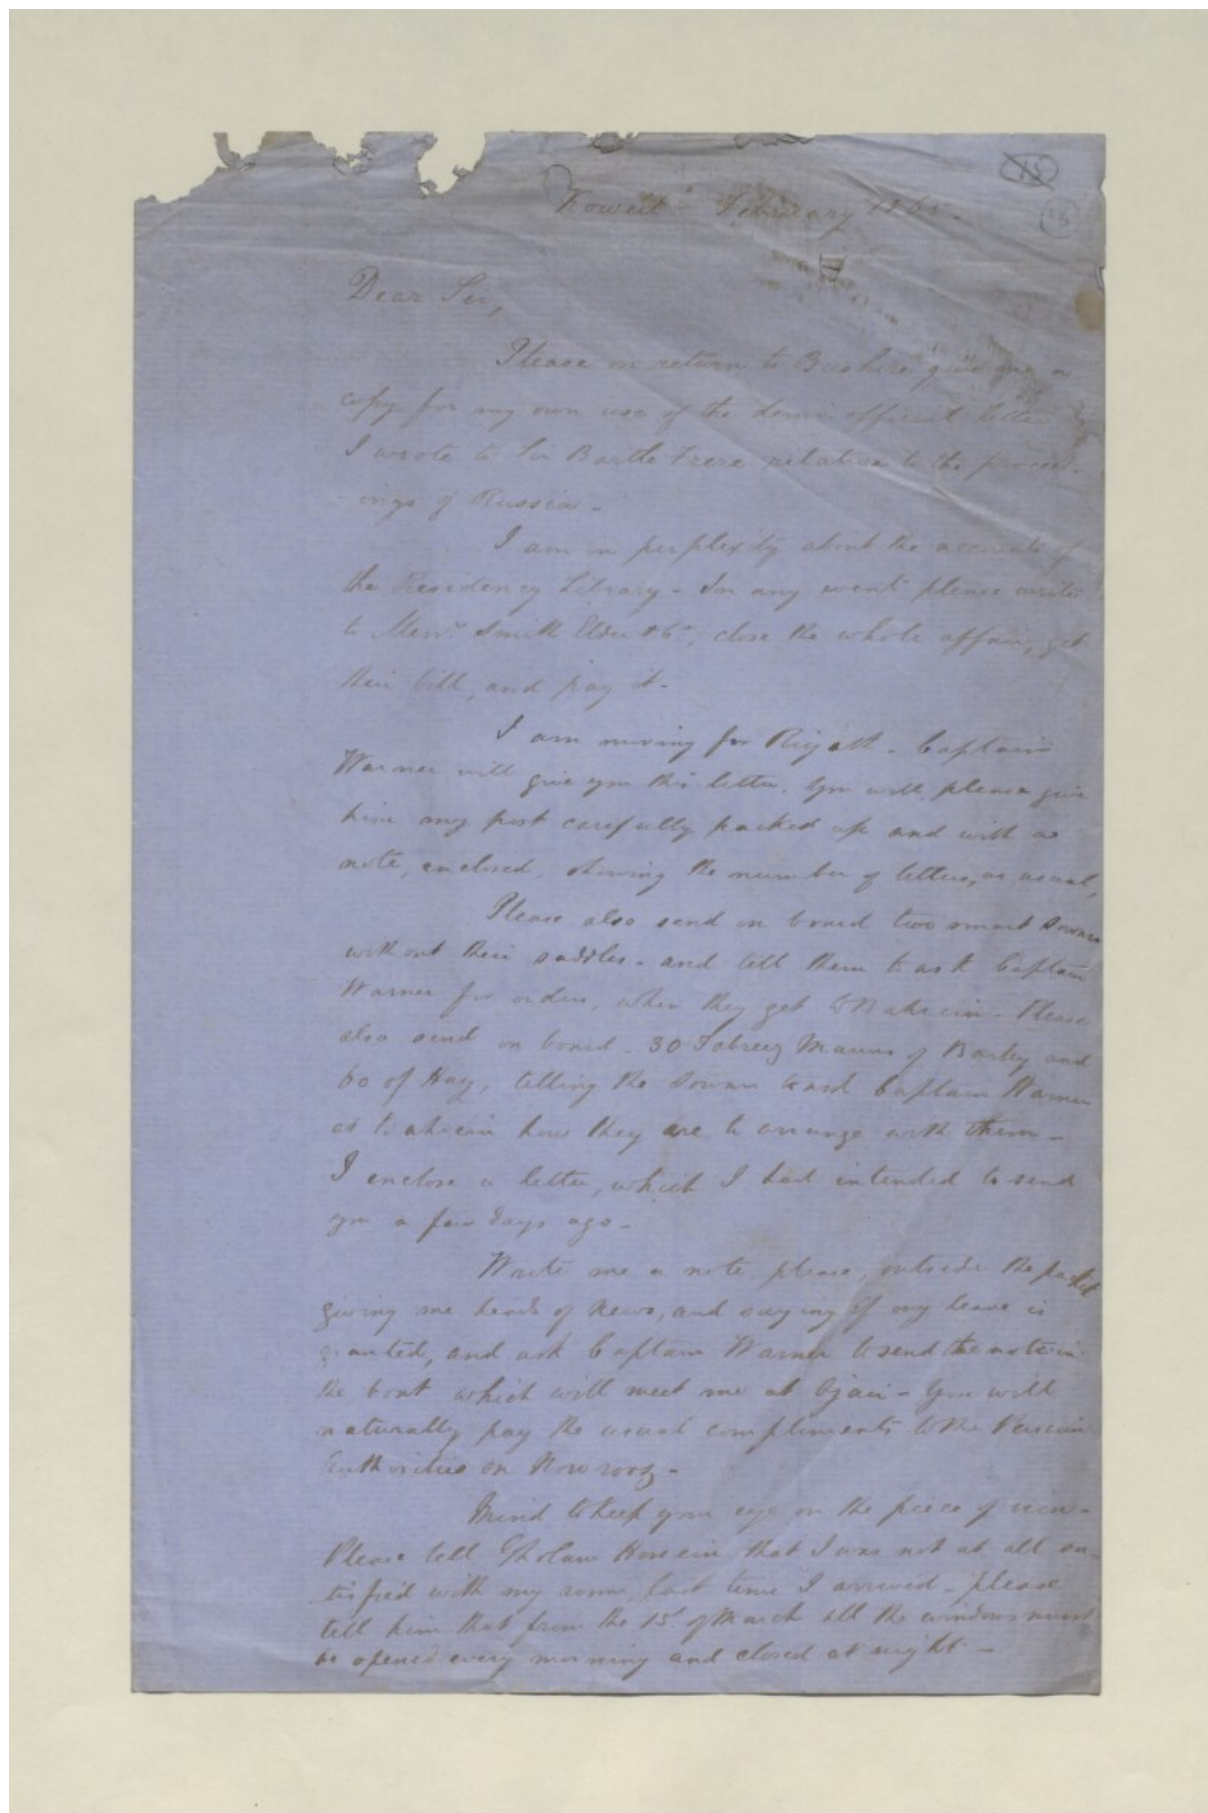 Koweit February 1865-
Dear Sir,
Please on return to Bushire give me a
copy for my own use of the demi official letter
I wrote to Sir Bartle Frere relative to the proceed-
-ings of Russia-
I am in perplexity about the accounts of
the Residency Library- In any event please write
to Messrs Smith Elder & Co, close the whole affair, get
their bill, and pay it-
I am moving for Riyath- Captain
Warner will give you this letter. You will please give
him my post carefully packed up and with a
note, enclosed, showing the number of letters, as usual,
Please also send on board two smart Sowars
without their saddles- and tell them to ask Captain
Warner for orders, when they get to Bahrein- Please
also send on board- 30 Tabreez Mauns of Barley and
60 of Hay, telling the Sowars to ask Captain Warner
at Bahrein how they are to arrange with them-
I enclose a letter, which I had intended to send
you a few days ago-
Write me a note please, outside the packet
giving me heads of news, and saying if my leave is
granted, and ask Captain Warner to send the note in
the boat which will meet me at Ojair- You will
naturally pay the usual compliments to the Persian
Authorities on Nowrooz-
Mind to keep your eye on the piece of
Please tell Gholam Hossein that I was not at all sa-
-tisfied with my rooms, last time I arrived- please
tell him that from the 15th of March all the windows must
be opened every morning and closed at night-